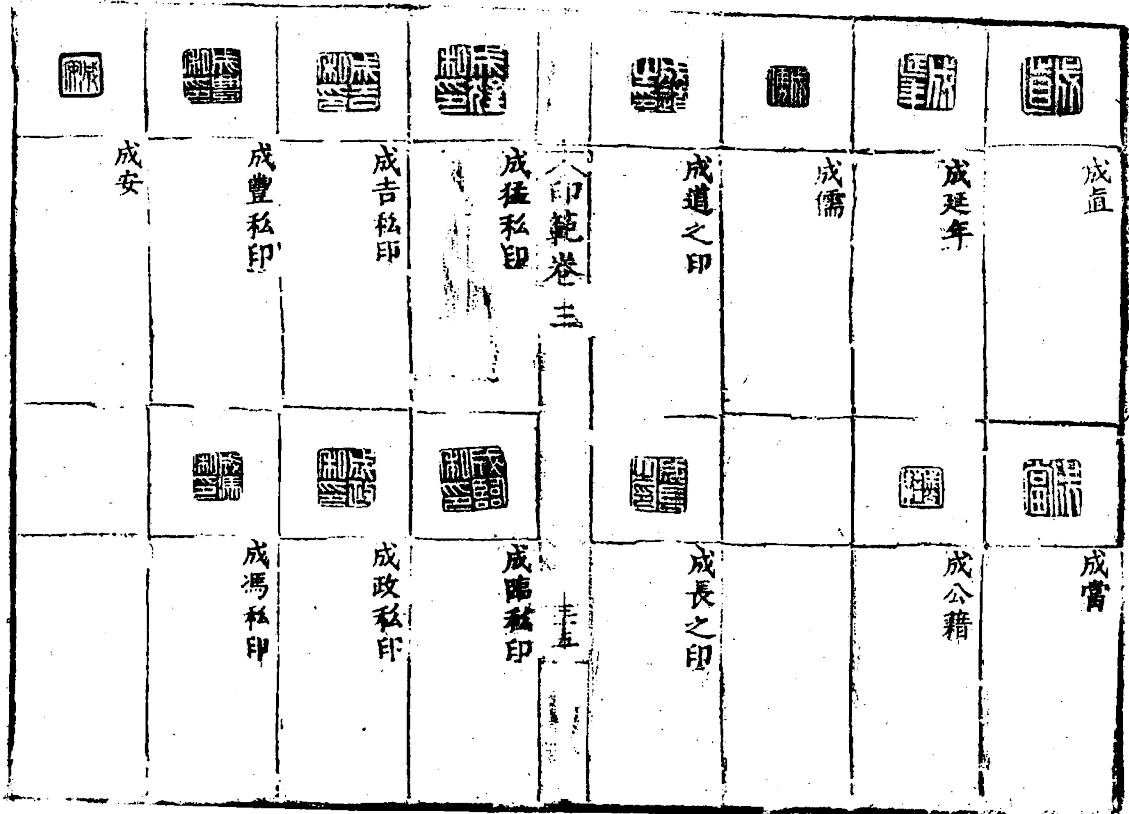 成直
成當
成延年
成公藉
成儒
成道之印
成長之印
印範卷三
三十五
成猛私印
成臨私印
成吉私印
成政私印
成豐私印
成馮私印
成安